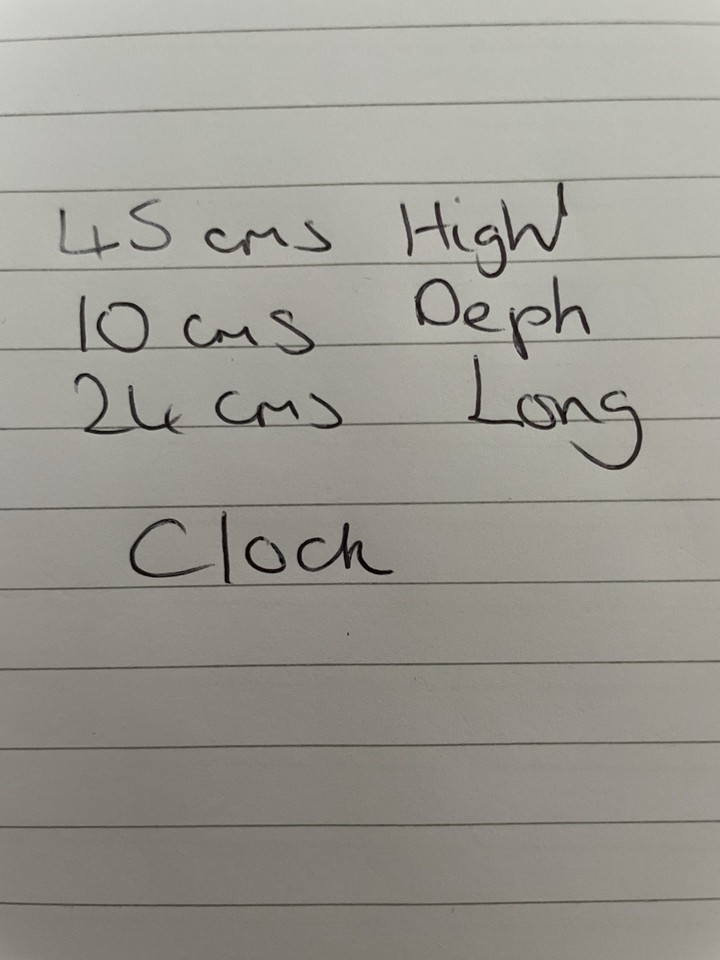 45 cms High
10 cms Deph
24 cms Long
Clock